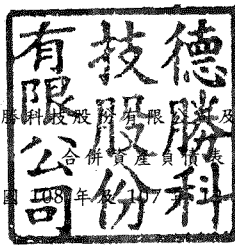 德勝科
技股份
有限公司
勝科技股份有限公司及
合併資產負債表
國 108 年及 107 年